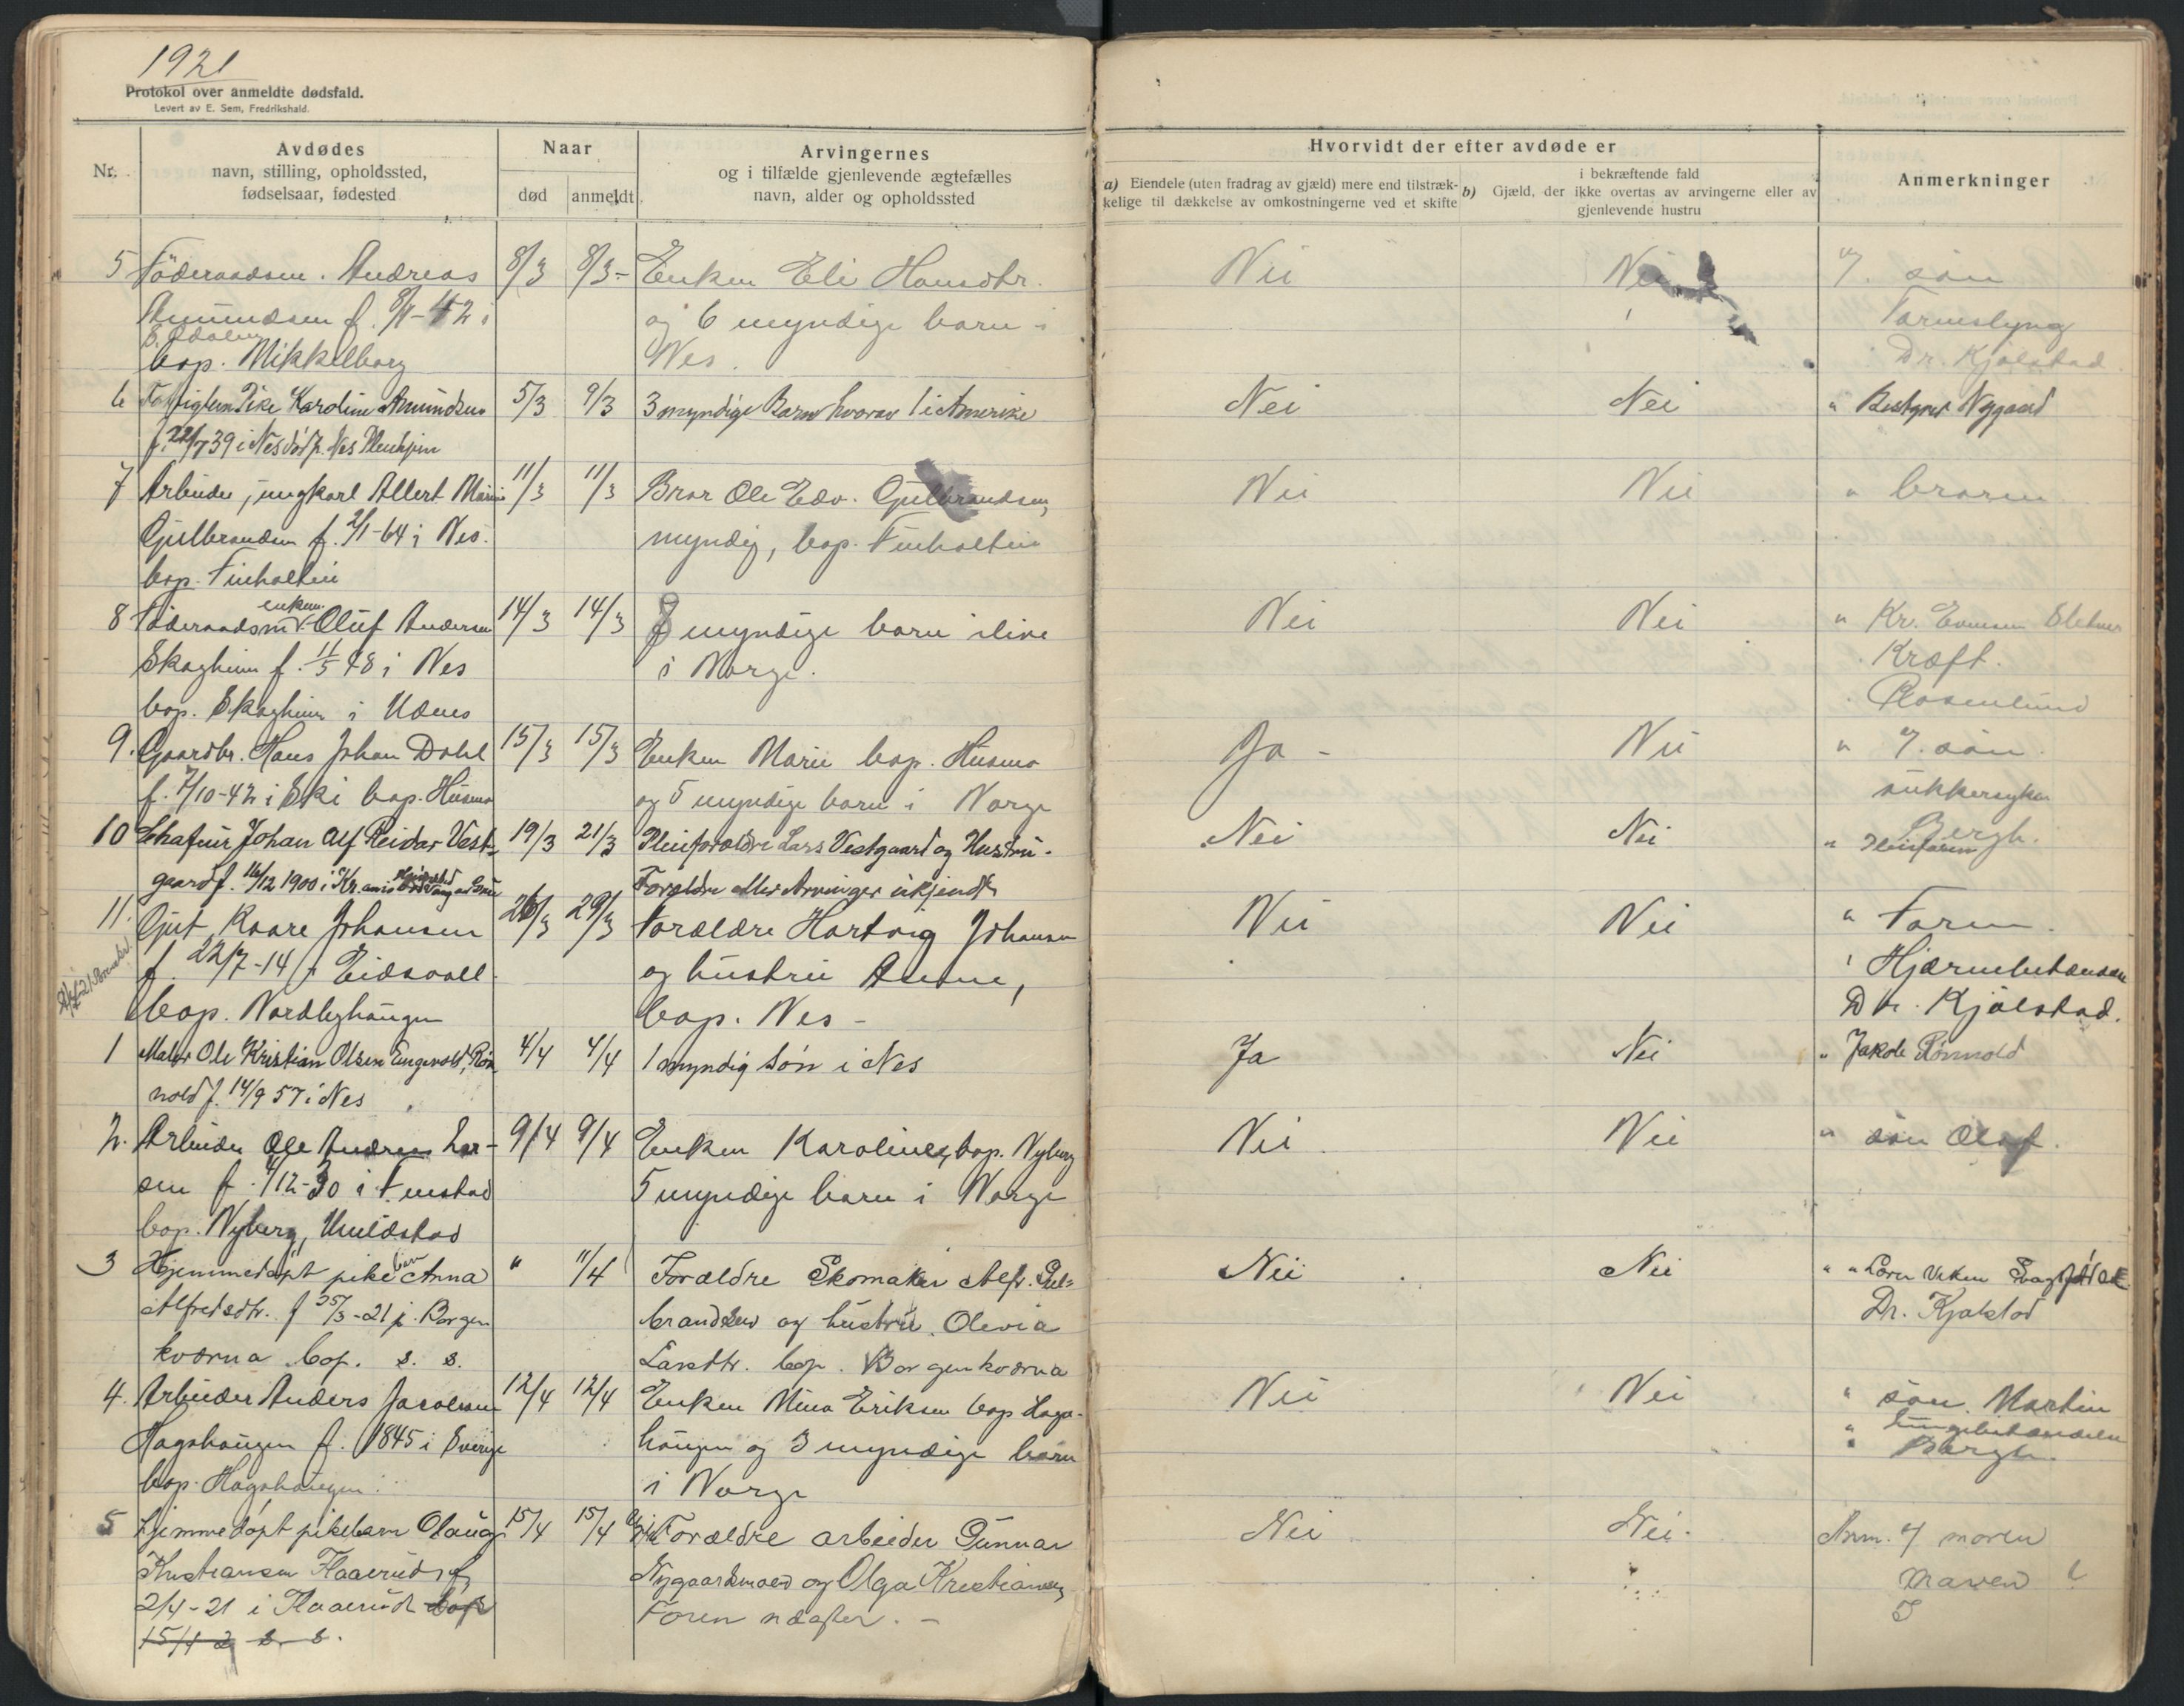 1921
Protokol over anmeldte dødsfald.
Levert av E. Sem, Fredrikshald.
Nr.
Avdødes
navn, stilling, opholdssted,
fødselsaar, fødested
Naar
død anmeldt
Arvingernes
og i tilfælde gjenlevende ægtefælles
navn, alder og opholdssted
Hvorvidt der efter avdøde er
a) Eiendele (uten fradrag av gjæld) mere end tilstræk-
kelige til dækkelse av omkostningerne ved et skifte
b) i bekræftende fald
Gjæld, der ikke overtas av arvingerne eller av
gjenlevende hustru
Anmerkninger
5 Föderaadsm. Andreas 8/3 8/3- Enken Eli Hansdtr. Nei Nei søn
Amundsen f. 8/1-42 i og 6 myndige barn i
S. Odalen
bop. Mikkelborg Nes. Dr. Kjølstad
6 Pike Karoline Amundsen 5/3 9/3 3 myndige Barn hvorav 1 i Amerika Nei Nei " Bestyrer Nygaard
f. 22/7 39 i Nes død p. Nes Pleiehjem
7 Arbeider, ungkarl Albert 11/3 11/3 Bror Ole Edv. Gulbrandsen, Nei Nei " broren
Gulbrandsen f. 2/1-64 i Nes. myndig, bop. Finholteie
bop. Finholteie
8 Föderaadsm. enken Oluf Andersen 14/3 14/3 myndige barn ilive Nei Nei " Kr. Evensen
Skogheim f. 11/5 48 i Nes i Norge. Kræft.
bop. Skogheim i Udnes Rosenlund
9. Gaardbr. Hans Johan Dahl 15/3 15/3 Enken Marie bop. Husmo Ja - Nei " søn
f. 7/10-42 i Ski bop. Husmo og 5 myndige barn i Norge sukkersyke
Bergh.
10 Chafeur Johan Alf Reidar Vest- 19/3 21/3 Pleieforældre Lars Vestgaard og Hustru. Nei Nei " Pleiefaren
gaard f. 16/12 1900 i Kr.ania Forældre eller Arvinger ukjendt
11. Gut Kaare Johansen 26/3 29/3 Forældre Hartvig Johansen Nei Nei " Faren.
f. 22/7-14 i Eidsvoll og hustru Anne, Hjærnebetændelse
bop. Nordlyhaugen bop. Nes - Dr. Kjølstad.
1 Maler Ole Kristian Olsen Engevold, Røn 4/4 4/4 1 myndig søn i Nes Ja Nei " Jakob Rønnold
nold f. 14/9 57 i Nes
2. Arbeider Ole Andreas Lar- 9/4 9/4 Enken Karoline, bop. Nyberg Nei Nei " søn Olaf.
sen f. 4/12-30 i Fenstad 5 myndige barn i Norge
bop. Nyberg, Huldstad
3 Hjemmedøpt pikebarn Anna " 11/4 Forældre Skomaker Alfr. Gul- Nei Nei
Alfredsdtr. f 25/3-21 i Borgen brandsen og hustru Olevia Dr. Kjølstad
kværna bop. s. s. Larsdtr. bop. Borgenkværna
4. Arbeider Anders Jacobsen 12/4 12/4 Enken Mina Eriksen bop Haga- Nei Nei " søn Martin
Hagahaugen f. 1845 i Sverige haugen og 3 myndige barn " lungebetændelse
bop. Hagahaugen i Norge " Bergh.
5 Hjemmedøpt pikebarn Olaug 15/4 15/4 Forældre arbeider Gunnar Nei Nei. Anm. moren
Kristiansen Haaerud f. Nygaardsmoen og Olga Kristiansen,
2/4-21 i Haaerud bop
15/4 s. s.